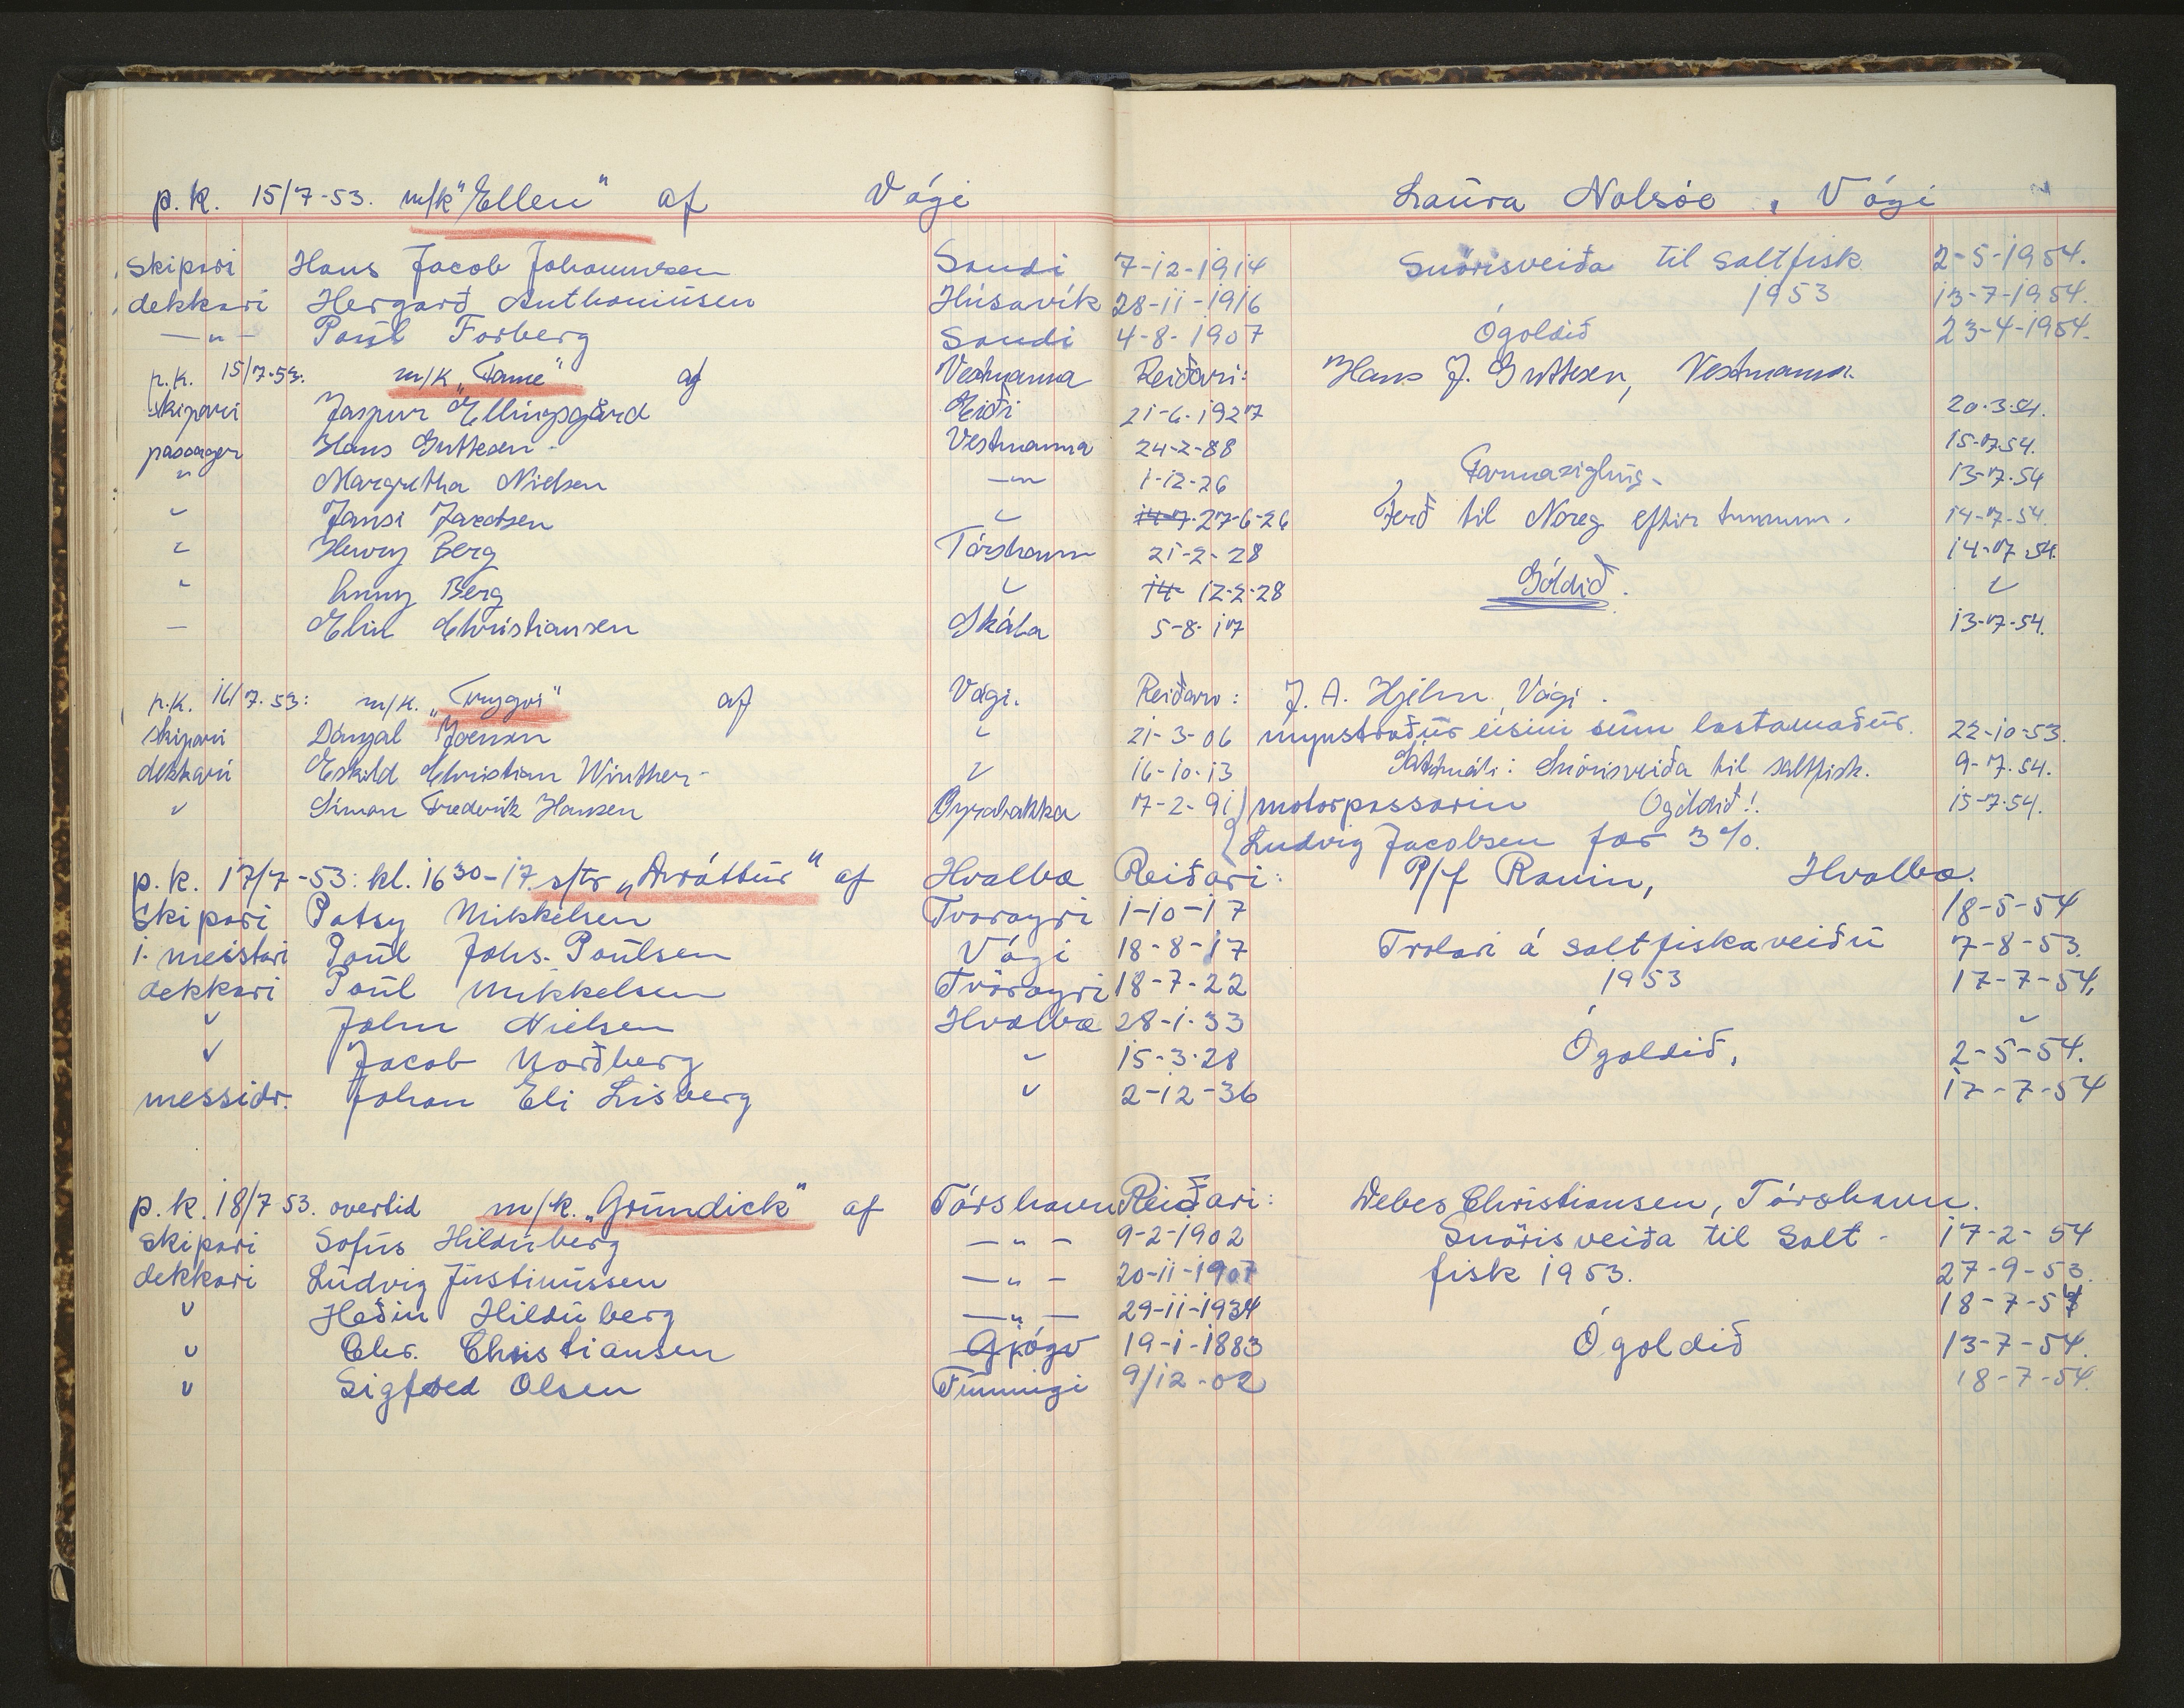 p. k. 15/7-53. m/k "Ellen" af Vági Laura Nolsöe, Vági
skipari Hans Jacob Johannesen Sandi 7-12-1914 Snörisveiða til saltfisk 2-5-1954.
dekkari Hergarð Anthoniusen Húsavík 28-11-1916 1953 13-7-1954.
—"— Poul Forberg Sandi 4-8-1907 Ógoldið 23-4-1954.
p.k. 15/7-53. m/k „Fame" af Vestmanna Reiðari: Hans J. Guttesen, Vestmanna.
skipari Jaspur Ellingsgård Eiði 21-6-1927 20-3-54.
passager Hans Guttesen Vestmanna 24-2-88 15-7-54.
" Margretha Nielsen —"— 1-12-26 Farmasigling. 13-7-54
" Jansi Jacobsen " 14-7- 27-6-26 Ferð til Noreg eftir tunnum. 14-7-54.
" Henry Berg Tórshavn 21-2-28 14-7-54.
" Anny Berg " 14- 12-2-28 Góldið. "
— Elin Christiansen Skála 5-8-17 13-7-54.
p.k. 16/7-53: m/k. „Trygvi" af Vági. Reiðari: J. A. Hjelm, Vági.
skipari Dánjal Joensen " 21-3-06 mynstraður eisini sum lastamaður. 22-10-53.
dekkari Eskild Christian Winther " 16-10-13 Sáttmáli: Snörisveiða til saltfisk. 9-7-54.
" Simon Frederik Hansen Øyrabakka 7-2-91) motorpassarin Ógoldið! 15-7-54.
Ludvig Jacobsen fær 3%.
p. k. 17/7-53: kl. 16³⁰-17. s/tr „Dráttur" af Hvalba Reiðari: P/f Ranin, Hvalba.
skipari Patsy Mikkelsen Tvøroyri 1-10-17 18-5-54
1. meistari Poul Johs. Poulsen Vági 18-8-17 Trolari á saltfiskaveiðu 7-8-53.
dekkari Poul Mikkelsen Tvöroyri 18-7-22 1953 17-7-54.
" John Nielsen Hvalba 28-1-33 "
" Jacob Norðberg " 15-3-28 Ógoldið, 2-5-54.
messidr. Johan Eli Lisberg " 2-12-36 17-7-54
p. k. 18/7 53. overtid m/k. „Grundick" af Tórshavn Reiðari: Debes Christiansen, Tórshavn.
skipari Sofus Hilduberg —"— 9-2-1902 Snörisveiða til salt- 17-2-54
dekkari Ludvig Justinussen —"— 20-11-1907 fisk 1953. 27-9-53.
" Heðin Hilduberg —"— 29-11-1934 18-7-54
" Chr. Christiansen Gjógv 19-1-1883 Ógoldið 13-7-54.
" Sigfred Olsen Funningi 9/12-02 18-7-54.